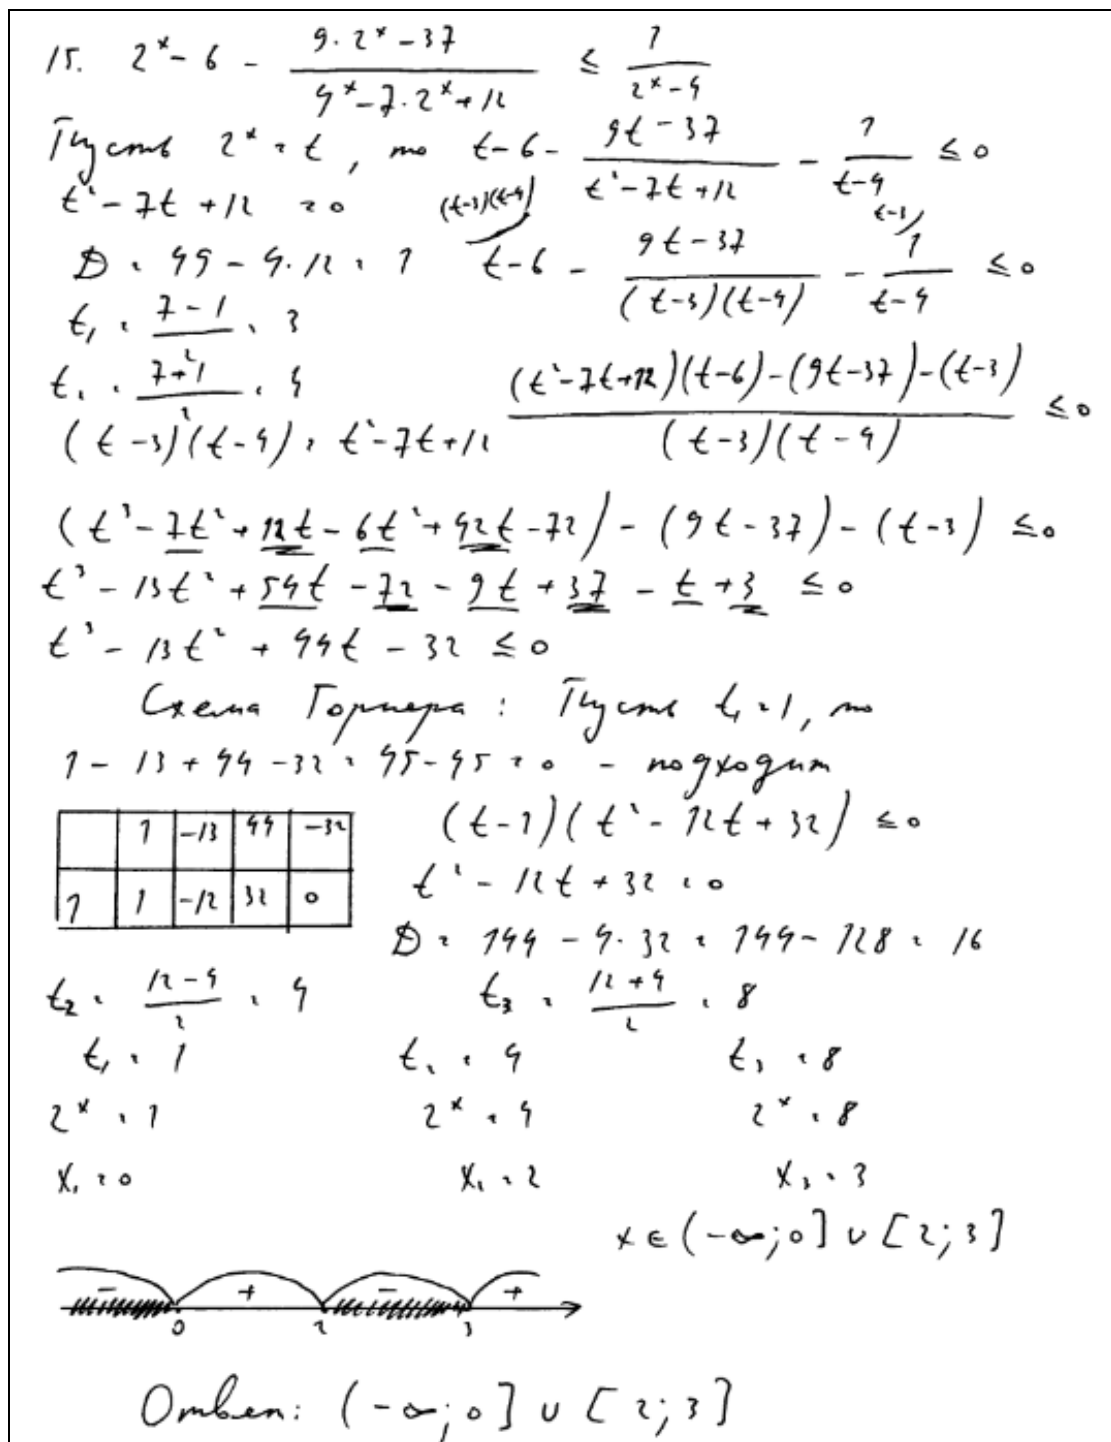 15. 2^x - 6 - (9·2^x - 37)/(4^x - 7·2^x + 12) ≤ 1/(2^x - 4)
Пусть 2^x = t, то t - 6 - (9t - 37)/(t² - 7t + 12) - 1/(t - 4) ≤ 0
t² - 7t + 12 = 0
D = 49 - 4·12 = 1
(t-3)(t-4)/ t - 6 - (9t - 37)/((t-3)(t-4)) - t-3/ 1/(t-4) ≤ 0
t₁ = (7-1)/2 = 3
t₂ = (7+1)/2 = 4
(t-3)(t-4) = t² - 7t + 12
((t² - 7t + 12)(t-6) - (9t-37) - (t-3))/((t-3)(t-4)) ≤ 0
(t³ - 7t² + 12t - 6t² + 42t - 72) - (9t - 37) - (t-3) ≤ 0
t³ - 13t² + 54t - 72 - 9t + 37 - t + 3 ≤ 0
t³ - 13t² + 44t - 32 ≤ 0
Схема Горнера: Пусть t₁ = 1, то
1 - 13 + 44 - 32 = 45 - 45 = 0 - подходит
1 -13 44 -32
1 1 -12 32 0
(t-1)(t² - 12t + 32) ≤ 0
t² - 12t + 32 = 0
D = 144 - 4·32 = 144 - 128 = 16
t₂ = (12-4)/2 = 4 t₃ = (12+4)/2 = 8
t₁ = 1 t₂ = 4 t₃ = 8
2^x = 1 2^x = 4 2^x = 8
x₁ = 0 x₂ = 2 x₃ = 3
x ∈ (-∞; 0] ∪ [2; 3]
- + - +
0 2 3
Ответ: (-∞; 0] ∪ [2; 3]